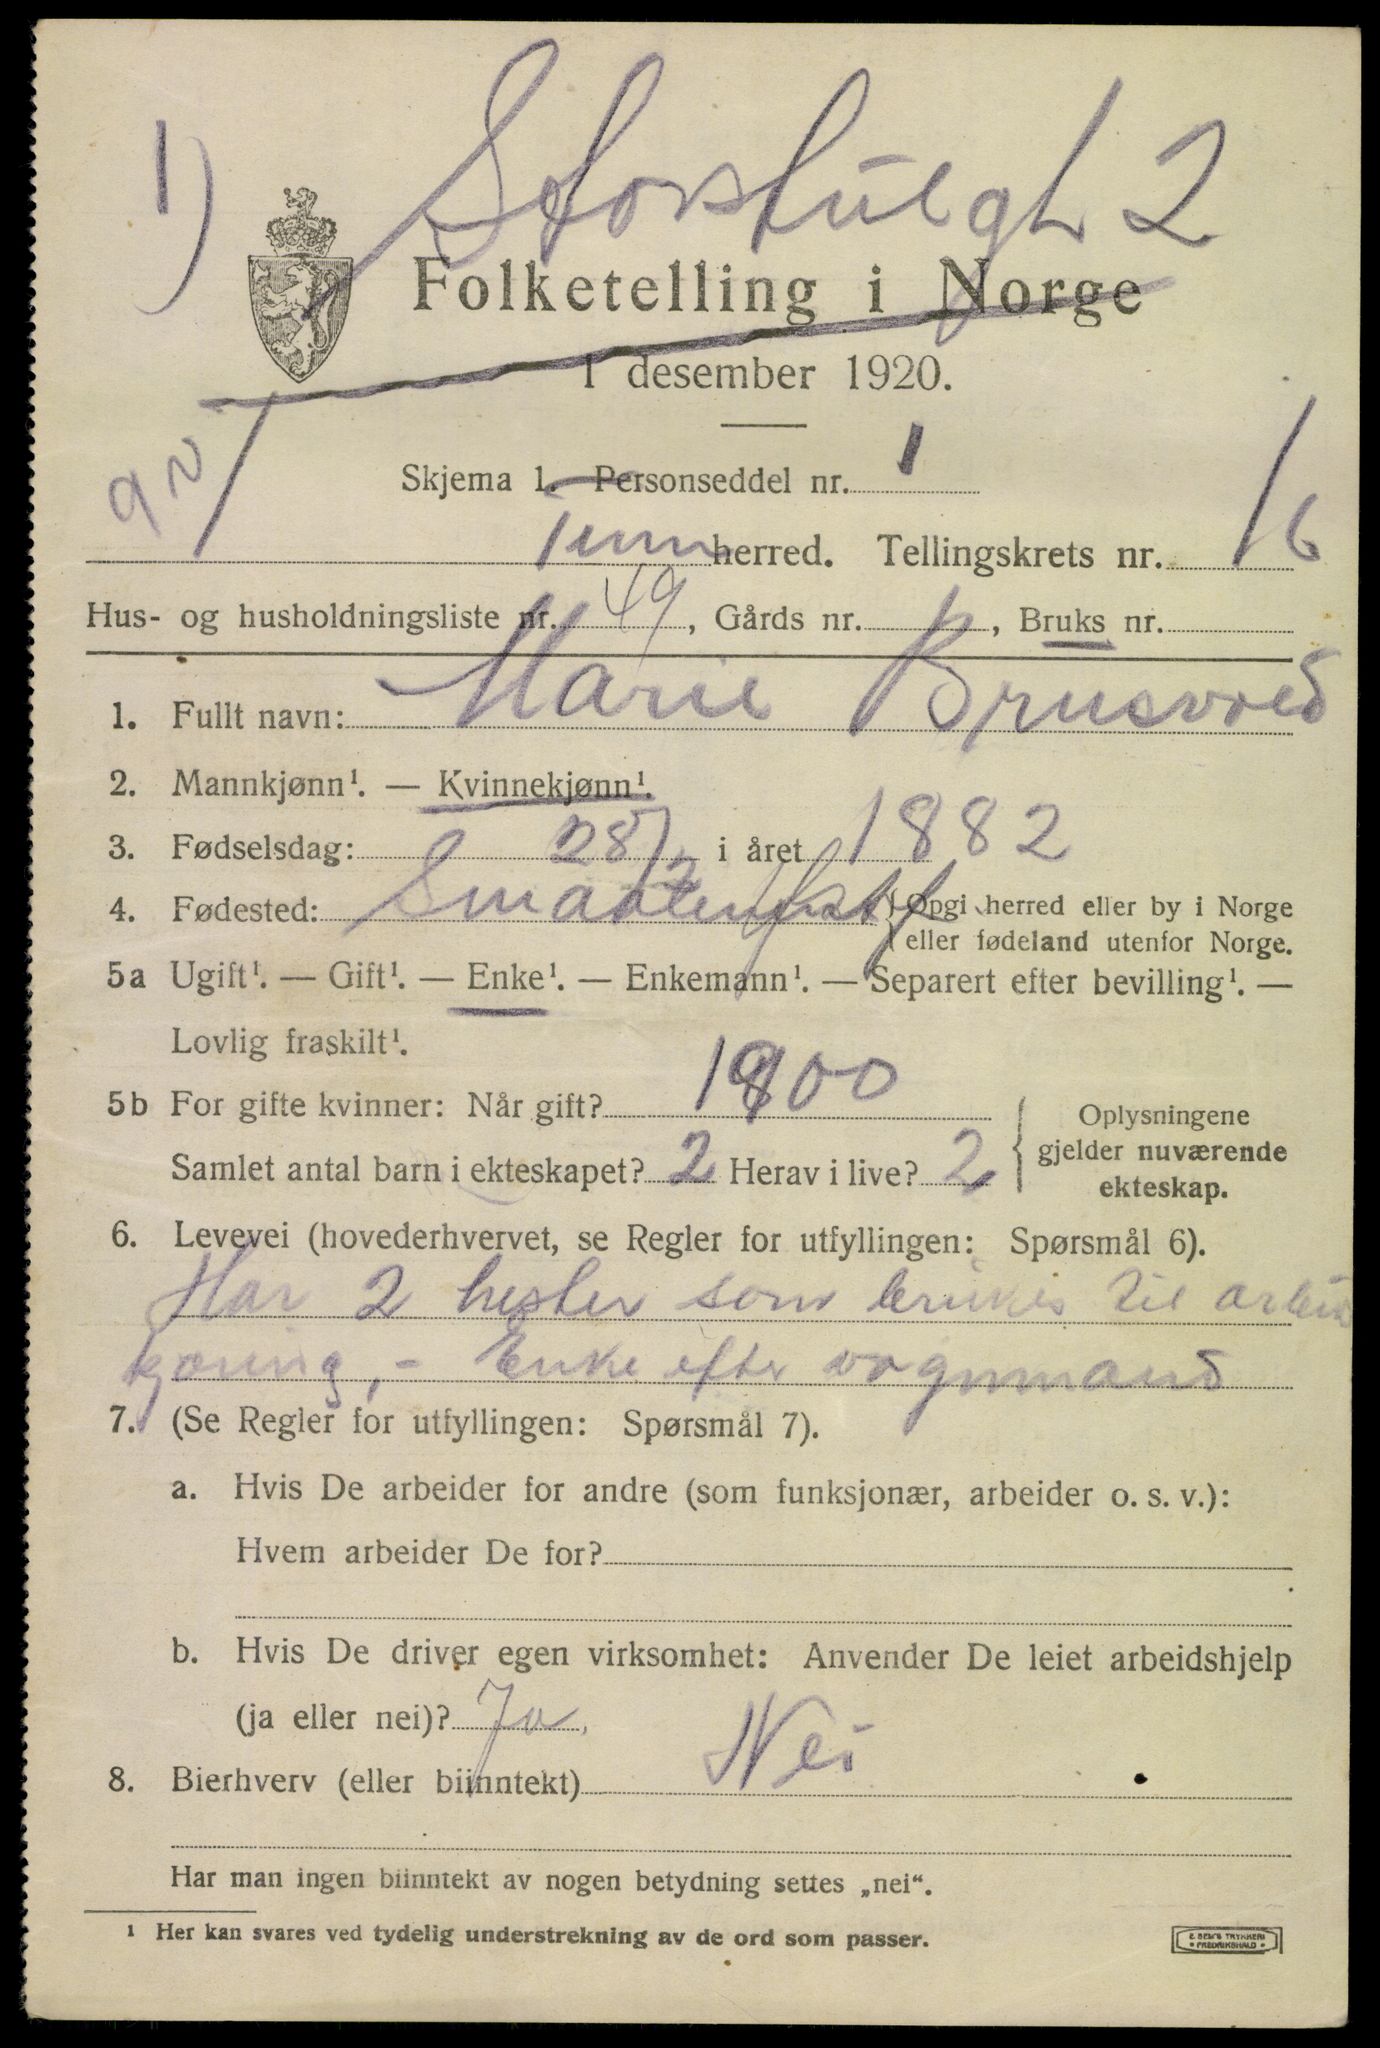 1) Storstulgt 2
Folketelling i Norge
1 desember 1920.
Skjema 1. Personseddel nr. 1
Tinn herred. Tellingskrets nr. 16
Hus- og husholdningsliste nr. 49, Gårds nr. , Bruks nr.
1. Fullt navn: Marie Brusvold
2. Mannkjønn¹. — Kvinnekjønn¹.
3. Fødselsdag: 28/2 i året 1882
4. Fødested: Opgi herred eller by i Norge
eller fødeland utenfor Norge.
5a Ugift¹. — Gift¹. — Enke¹. — Enkemann¹. — Separert efter bevilling¹. —
Lovlig fraskilt¹.
5b For gifte kvinner: Når gift? 1900
Oplysningene
gjelder nuværende
ekteskap.
Samlet antal barn i ekteskapet? 2 Herav i live? 2
6. Levevei (hovederhvervet, se Regler for utfyllingen: Spørsmål 6).
Har 2 hester som brukes til arbeids
kjøring, - Enke efter vognmand
7. (Se Regler for utfyllingen: Spørsmål 7).
a. Hvis De arbeider for andre (som funksjonær, arbeider o. s. v.):
Hvem arbeider De for?
b. Hvis De driver egen virksomhet: Anvender De leiet arbeidshjelp
(ja eller nei)? Ja.
8. Bierhverv (eller biinntekt) Nei
Har man ingen biinntekt av nogen betydning settes „nei“.
¹ Her kan svares ved tydelig understrekning av de ord som passer.
E SEM'S TRYKKERI
FREDRIKSHALD